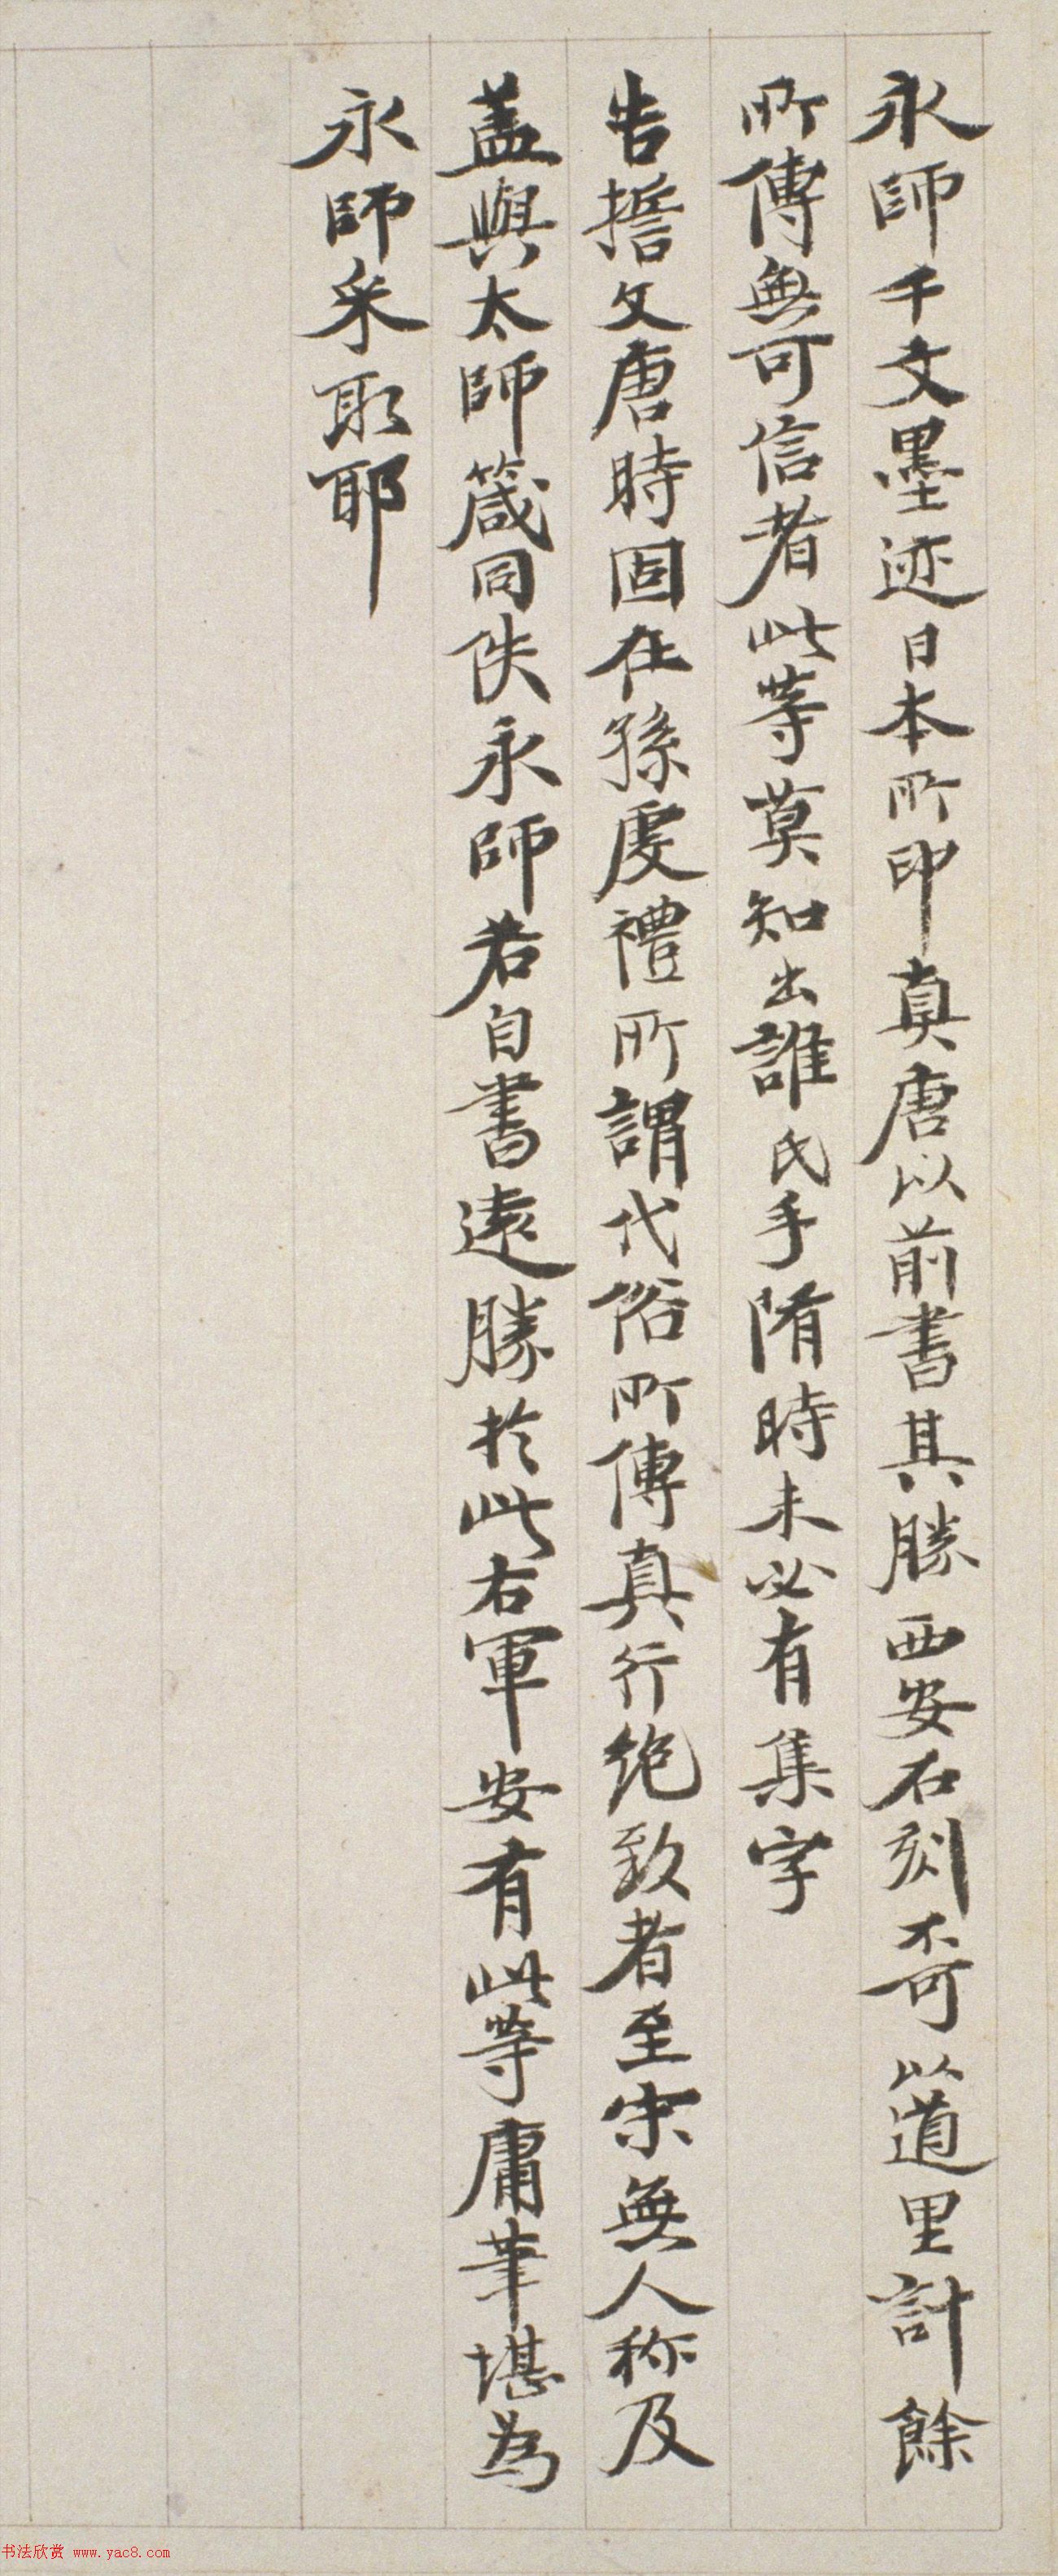 永師千文墨迹日本所印真唐以前書其勝西安石刻不可以道里計餘
所傳無可信者此等莫知出誰氏手隋時未必有集字
告誓文唐時固在孫虔禮所謂代俗所傳真行绝致者至宋無人称及
盖與太師箴同佚永師若自書遠勝於此右軍安有此等庸筆堪為
永師采取耶
书法欣赏 www.yac8.com